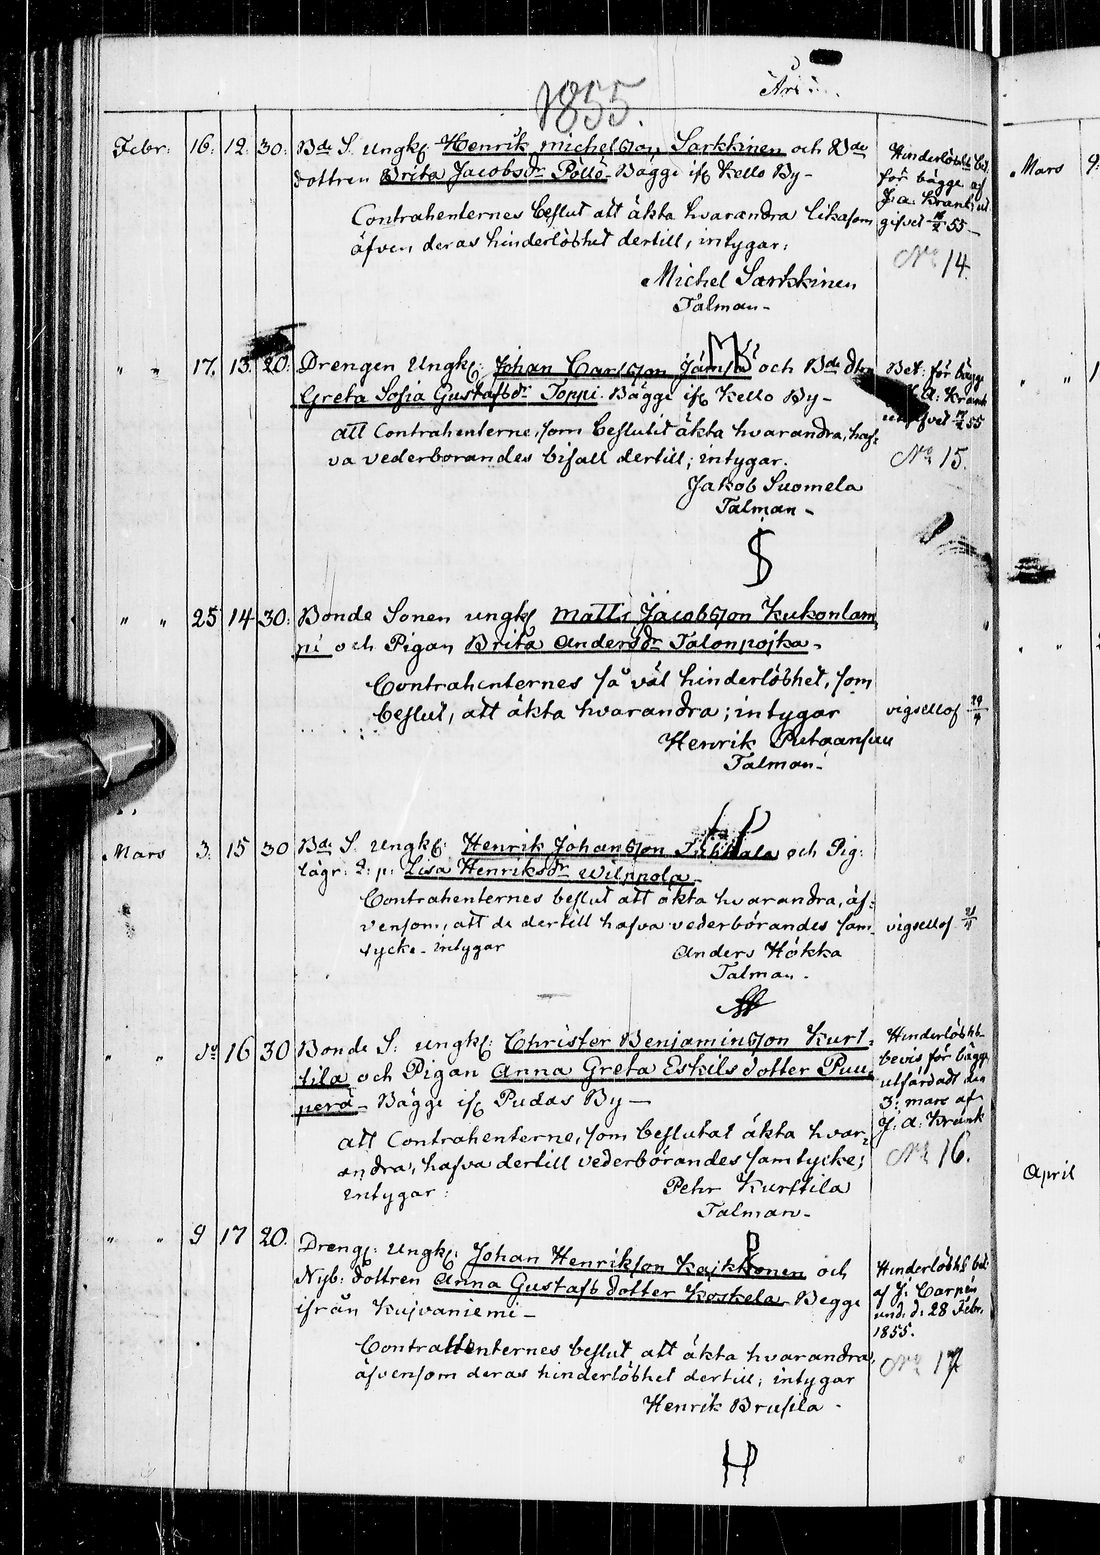 1855.
Febr: 16. 12. 30. Bde S. Ungk: Henrik Michelsson Sarkkinen och Bde
dottren Brita Jacobsdr Pöllö - Bägge if: Kello By -
Contrahenternes beslut att äkta hvarandra likasom
äfven deras hinderlöshet dertill, intygar:
Michel Sarkkinen
Talman -
Hinderlöshets bet.
för bägge af
J. A. Krank ut
gifvet 16/2 55 -
No 14.
" " 17. 13. 20. Drengen Ungk: Johan Carlsson Jämsä och Bde dtr
Greta Sofia Gustafsdr Toppi. Bägge if: Kello By -
att Contrahenterne, som beslutit äkta hvarandra, haf-
va vederborandes bifall dertill; intygar.
Jakob Suomela
Talman -
Bet. för bägge
J. A. Krank
55
No 15.
" " 25 14 30. Bonde Sonen ungk: Matts Jacobsson Kukonlam-
pi och Pigan Brita Andersdr Talonpojka -
Contrahenternes så väl hinderlöshet, som
beslut, att äkta hvarandra; intygar
Henrik
Talman -
vigsellof 29/4
Mars 3. 15 30 Bde S. Ungk: Henrik Johansson och Pig:
Lisa Henriksdr Wilppola -
Contrahenternes beslut att äkta hvarandra, äf-
vensom, att de dertill hafva vederbörandes sam-
tycke - intygar
Anders Hökka
Talman -
vigsellof 21/4
" " do 16 30 Bonde S: ungk: Christer Benjaminsson Kurt-
tila och Pigan Anna Greta Eskils dotter Puu-
perä - Bägge if: Pudas By -
att Contrahenterne, som beslutat äkta hvar-
andra, hafva dertill vederbörandes samtycke;
intygar:
Pehr Kurttila
Talman -
Hinderlösh.
bevis för bägge
utfärdadt den
3: mars af
J. A. Krank
No 16.
" " 9 17 20. Dreng: Ungk: Johan Henriksson Kaikkonen och
Nyb: dottren Anna Gustafs dotter Koskela - Begge
ifrån Kuivaniemi -
Contrahenternes beslut att äkta hvarandra,
äfvensom deras hinderlöshet dertill; intygar
Henrik Brusila -
Hinderlösh. bet.
af J. Carpén
und. d. 28 Febr.
1855.
No 17
Mars 9.
April